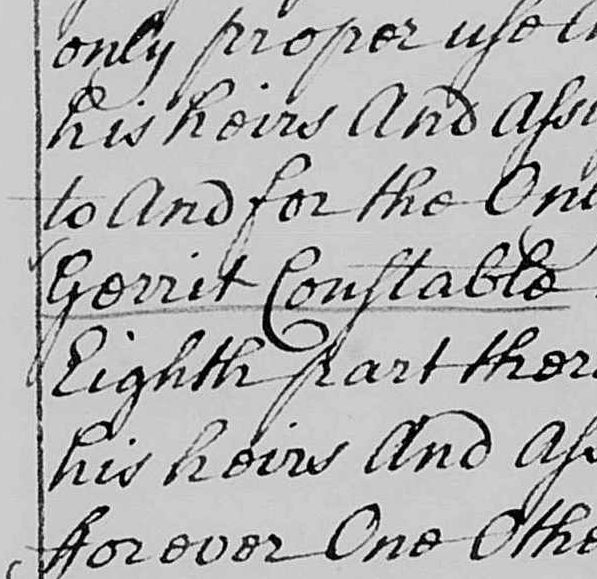 only proper use a
his heirs And assi
to And for the One
Gerrit Constable
Eighth part ther
his heirs And ass
forever One Othe